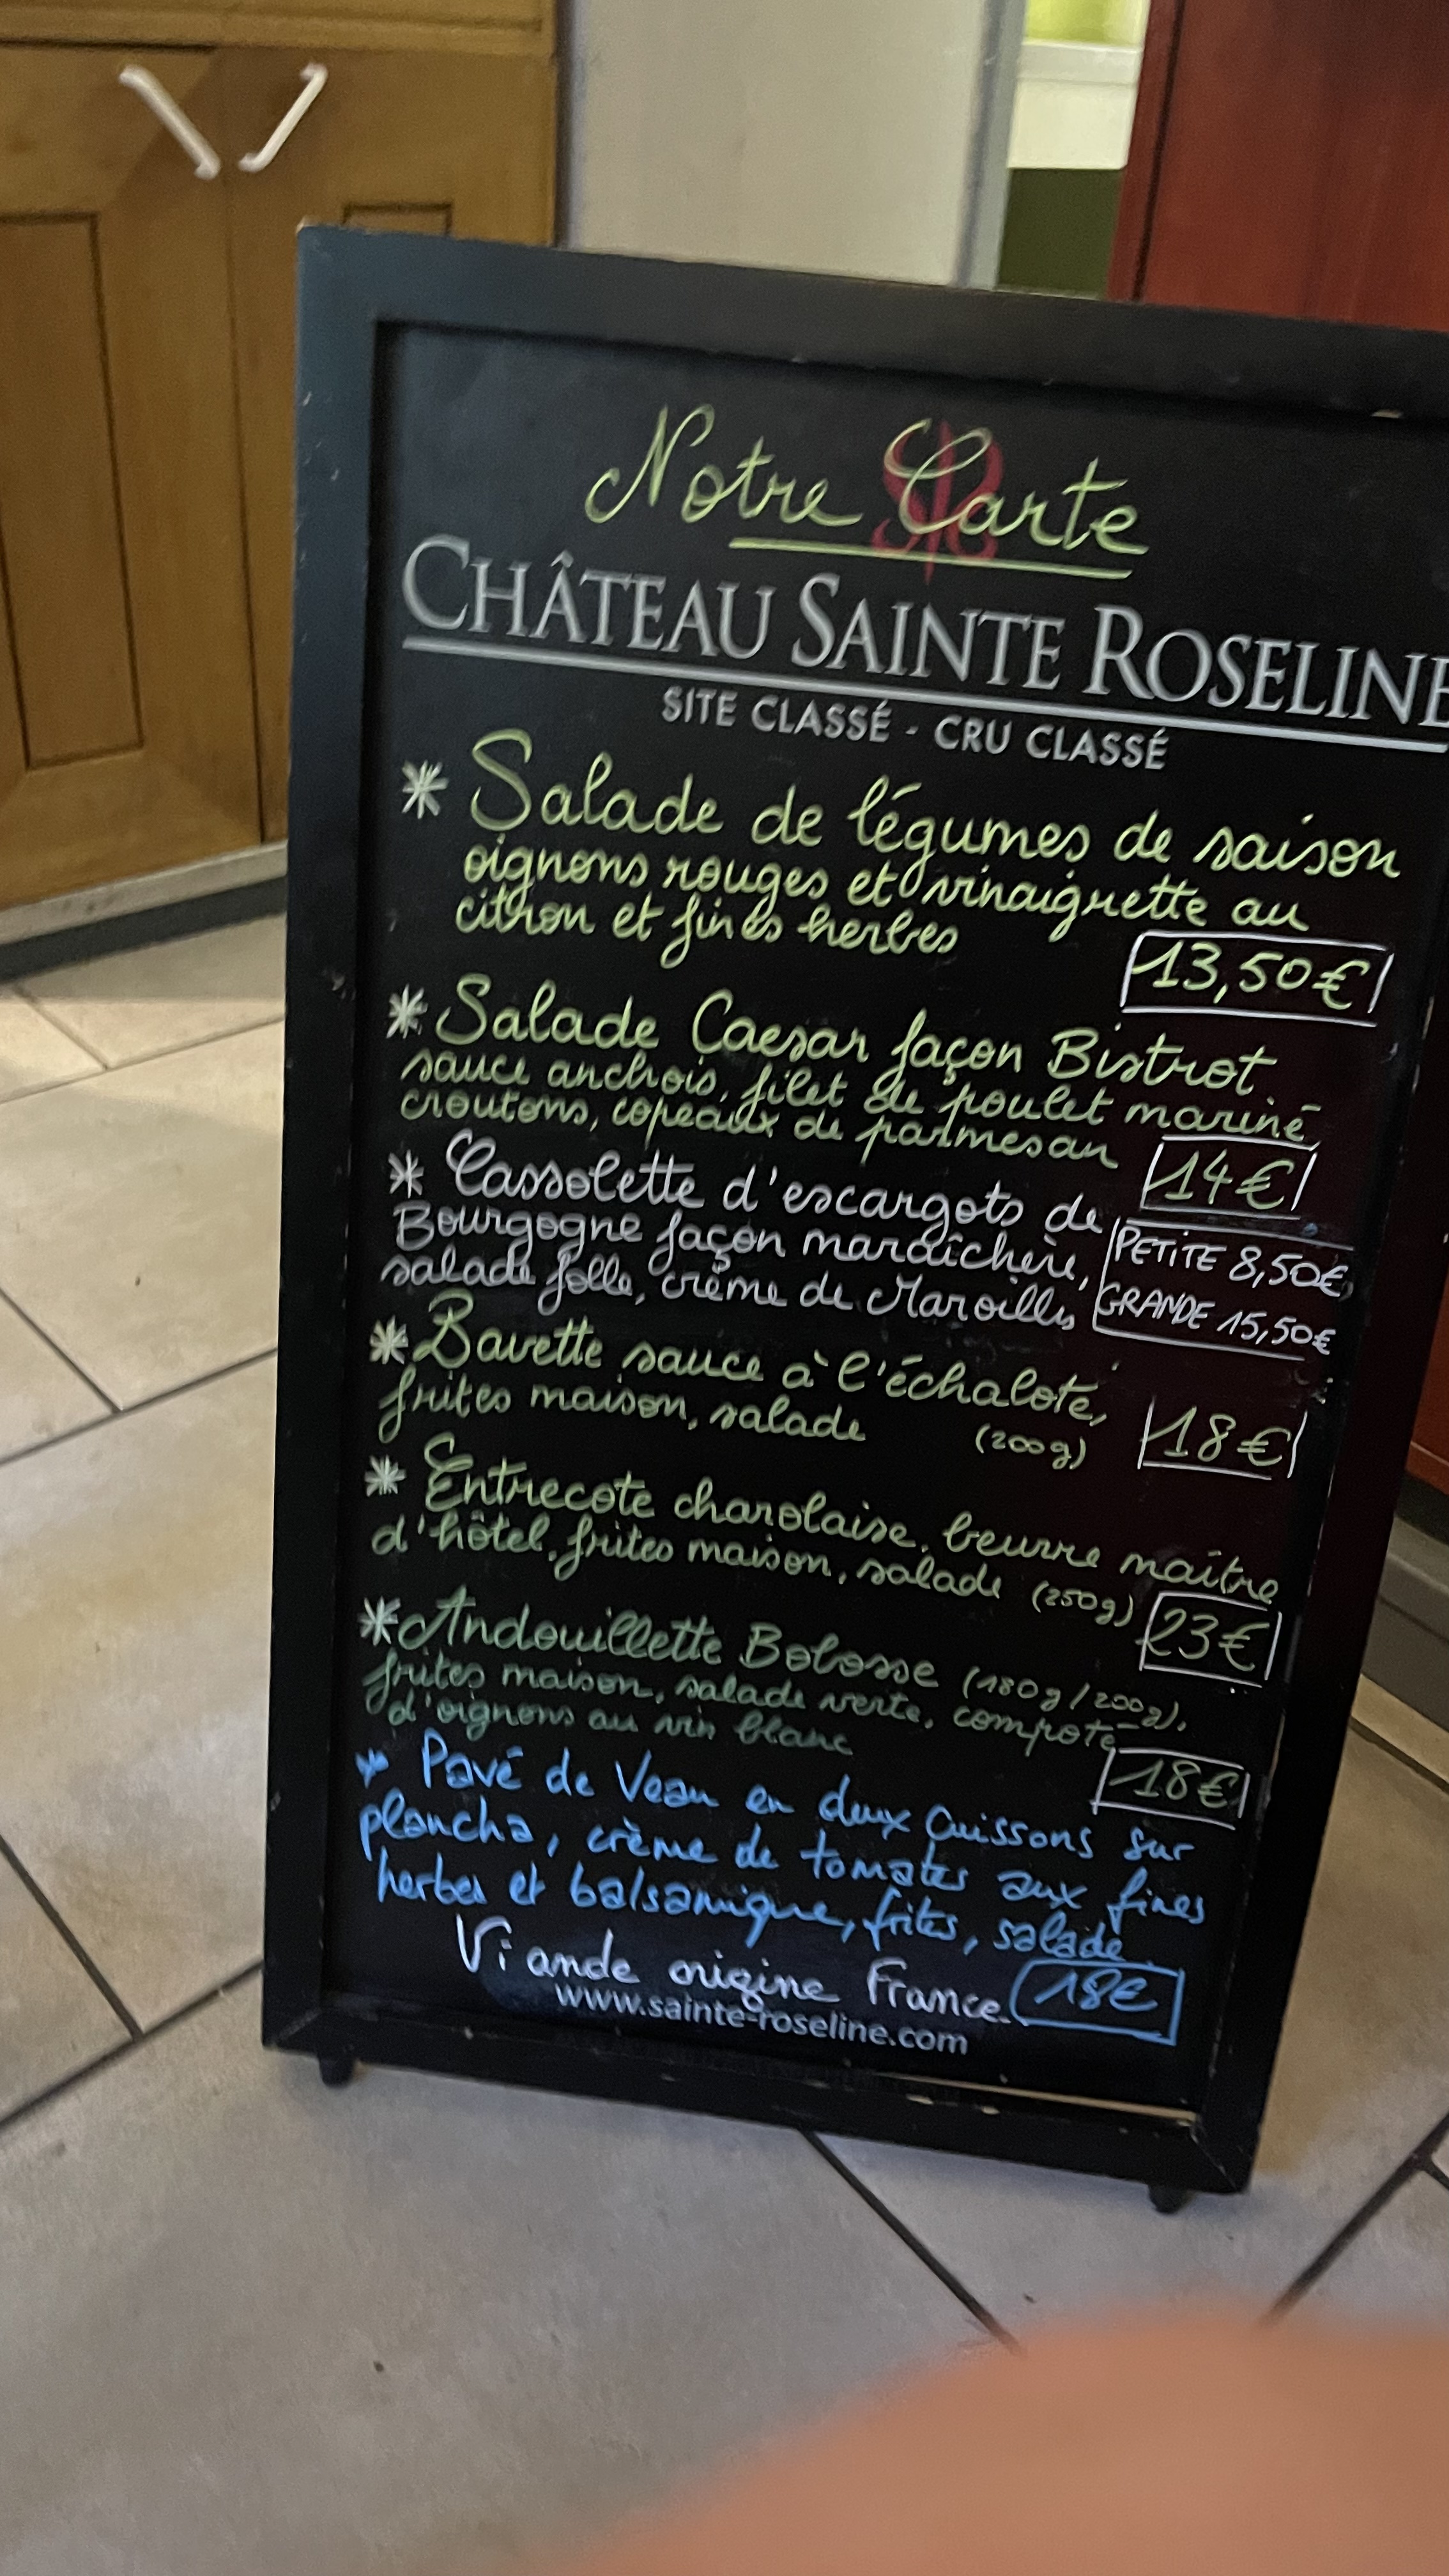 Notre Carte
CHÂTEAU SAINTE ROSELINE
SITE CLASSÉ - CRU CLASSÉ
* Salade de légumes de saison
oignons rouges et vinaigrette au
citron et fines herbes
13,50€
* Salade Caesar façon Bistrot
sauce anchois, filet de poulet mariné,
croutons, copeaux de parmesan
14€
* Cassolette d'escargots de
Bourgogne façon maraîchère,
salade folle, crème de Maroilles
PETITE 8,50€
GRANDE 15,50€
* Bavette sauce à l'échalote,
frites maison, salade (200g)
18€
* Entrecote charolaise, beurre maître
d'hôtel, frites maison, salade (250g)
23€
* Andouillette Bobosse (180g/200g),
frites maison, salade verte, compote
d'oignons au vin blanc
18€
* Pavé de Veau en deux Cuissons sur
plancha, crème de tomates aux fines
herbes et balsamique, frites, salade
Viande origine France.
18€
www.sainte-roseline.com